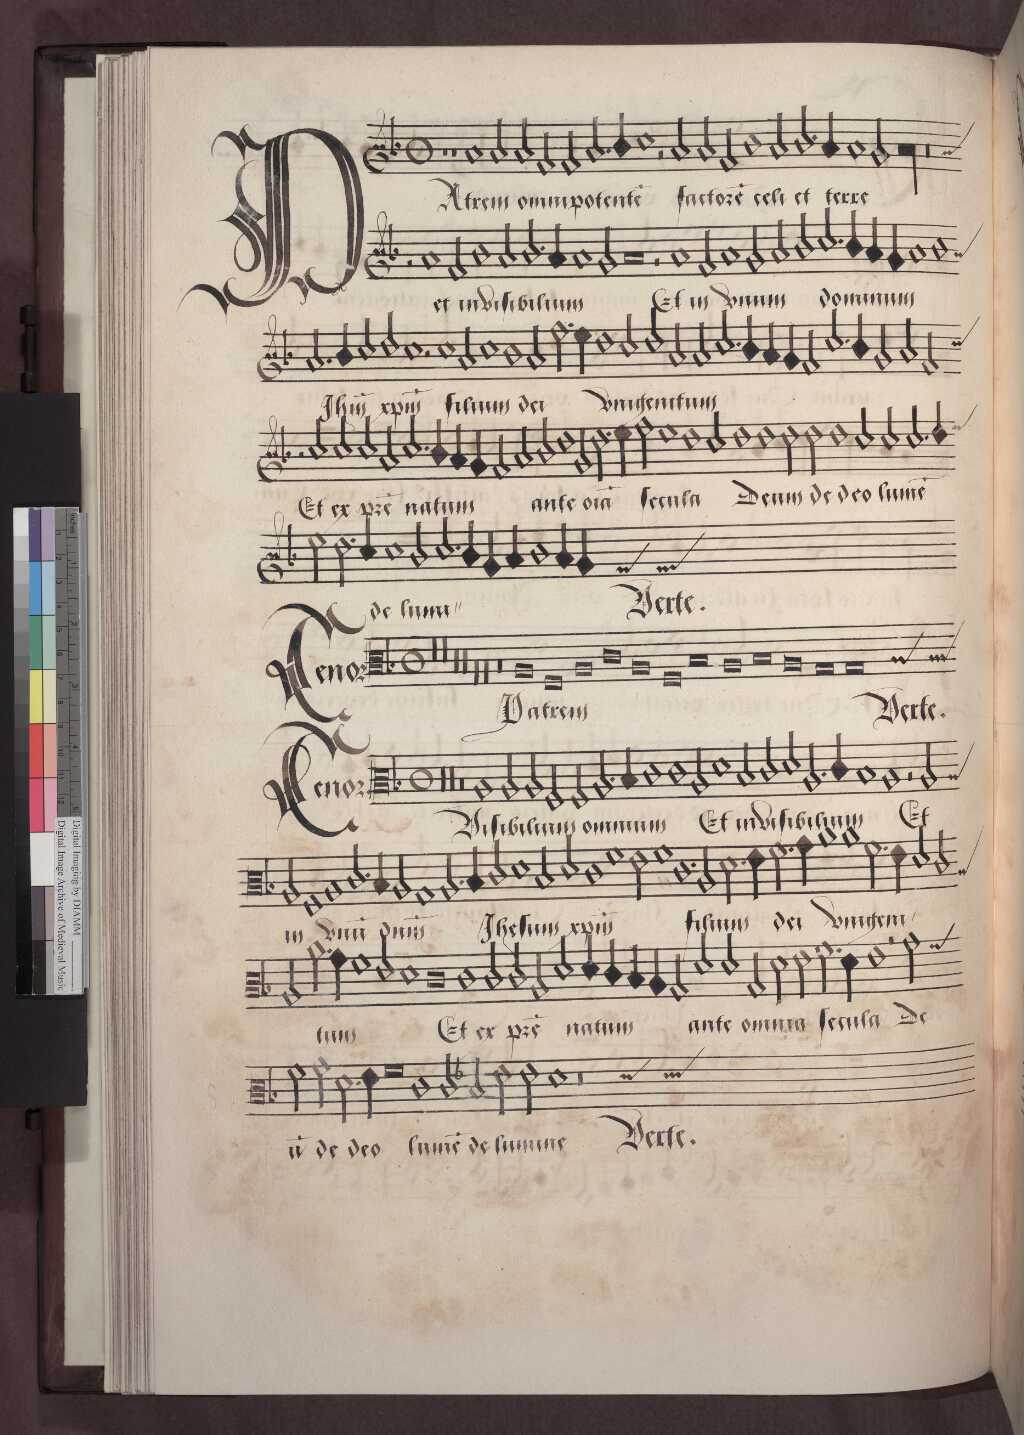 PAtrem omnipotentē factorē celi et terre
et invisibilium Et in vnum dominum
Jhūm xpm̄ filium dei vnigenitum
Et ex prē natum ante oīa secula Deum de deo lumē
de lumi〃
Verte.
Tenor
Patrem Verte.
Tenor
Visibilium omnium Et invisibilium Et
in vnū dnm̄ Jhesum xpm̄ filium dei vnigeni〃
tum Et ex prē natum ante omnia secula De
ū de deo lumē de lumine Verte.
Digital Imaging by DIAMM
Digital Image Archive of Medieval Music